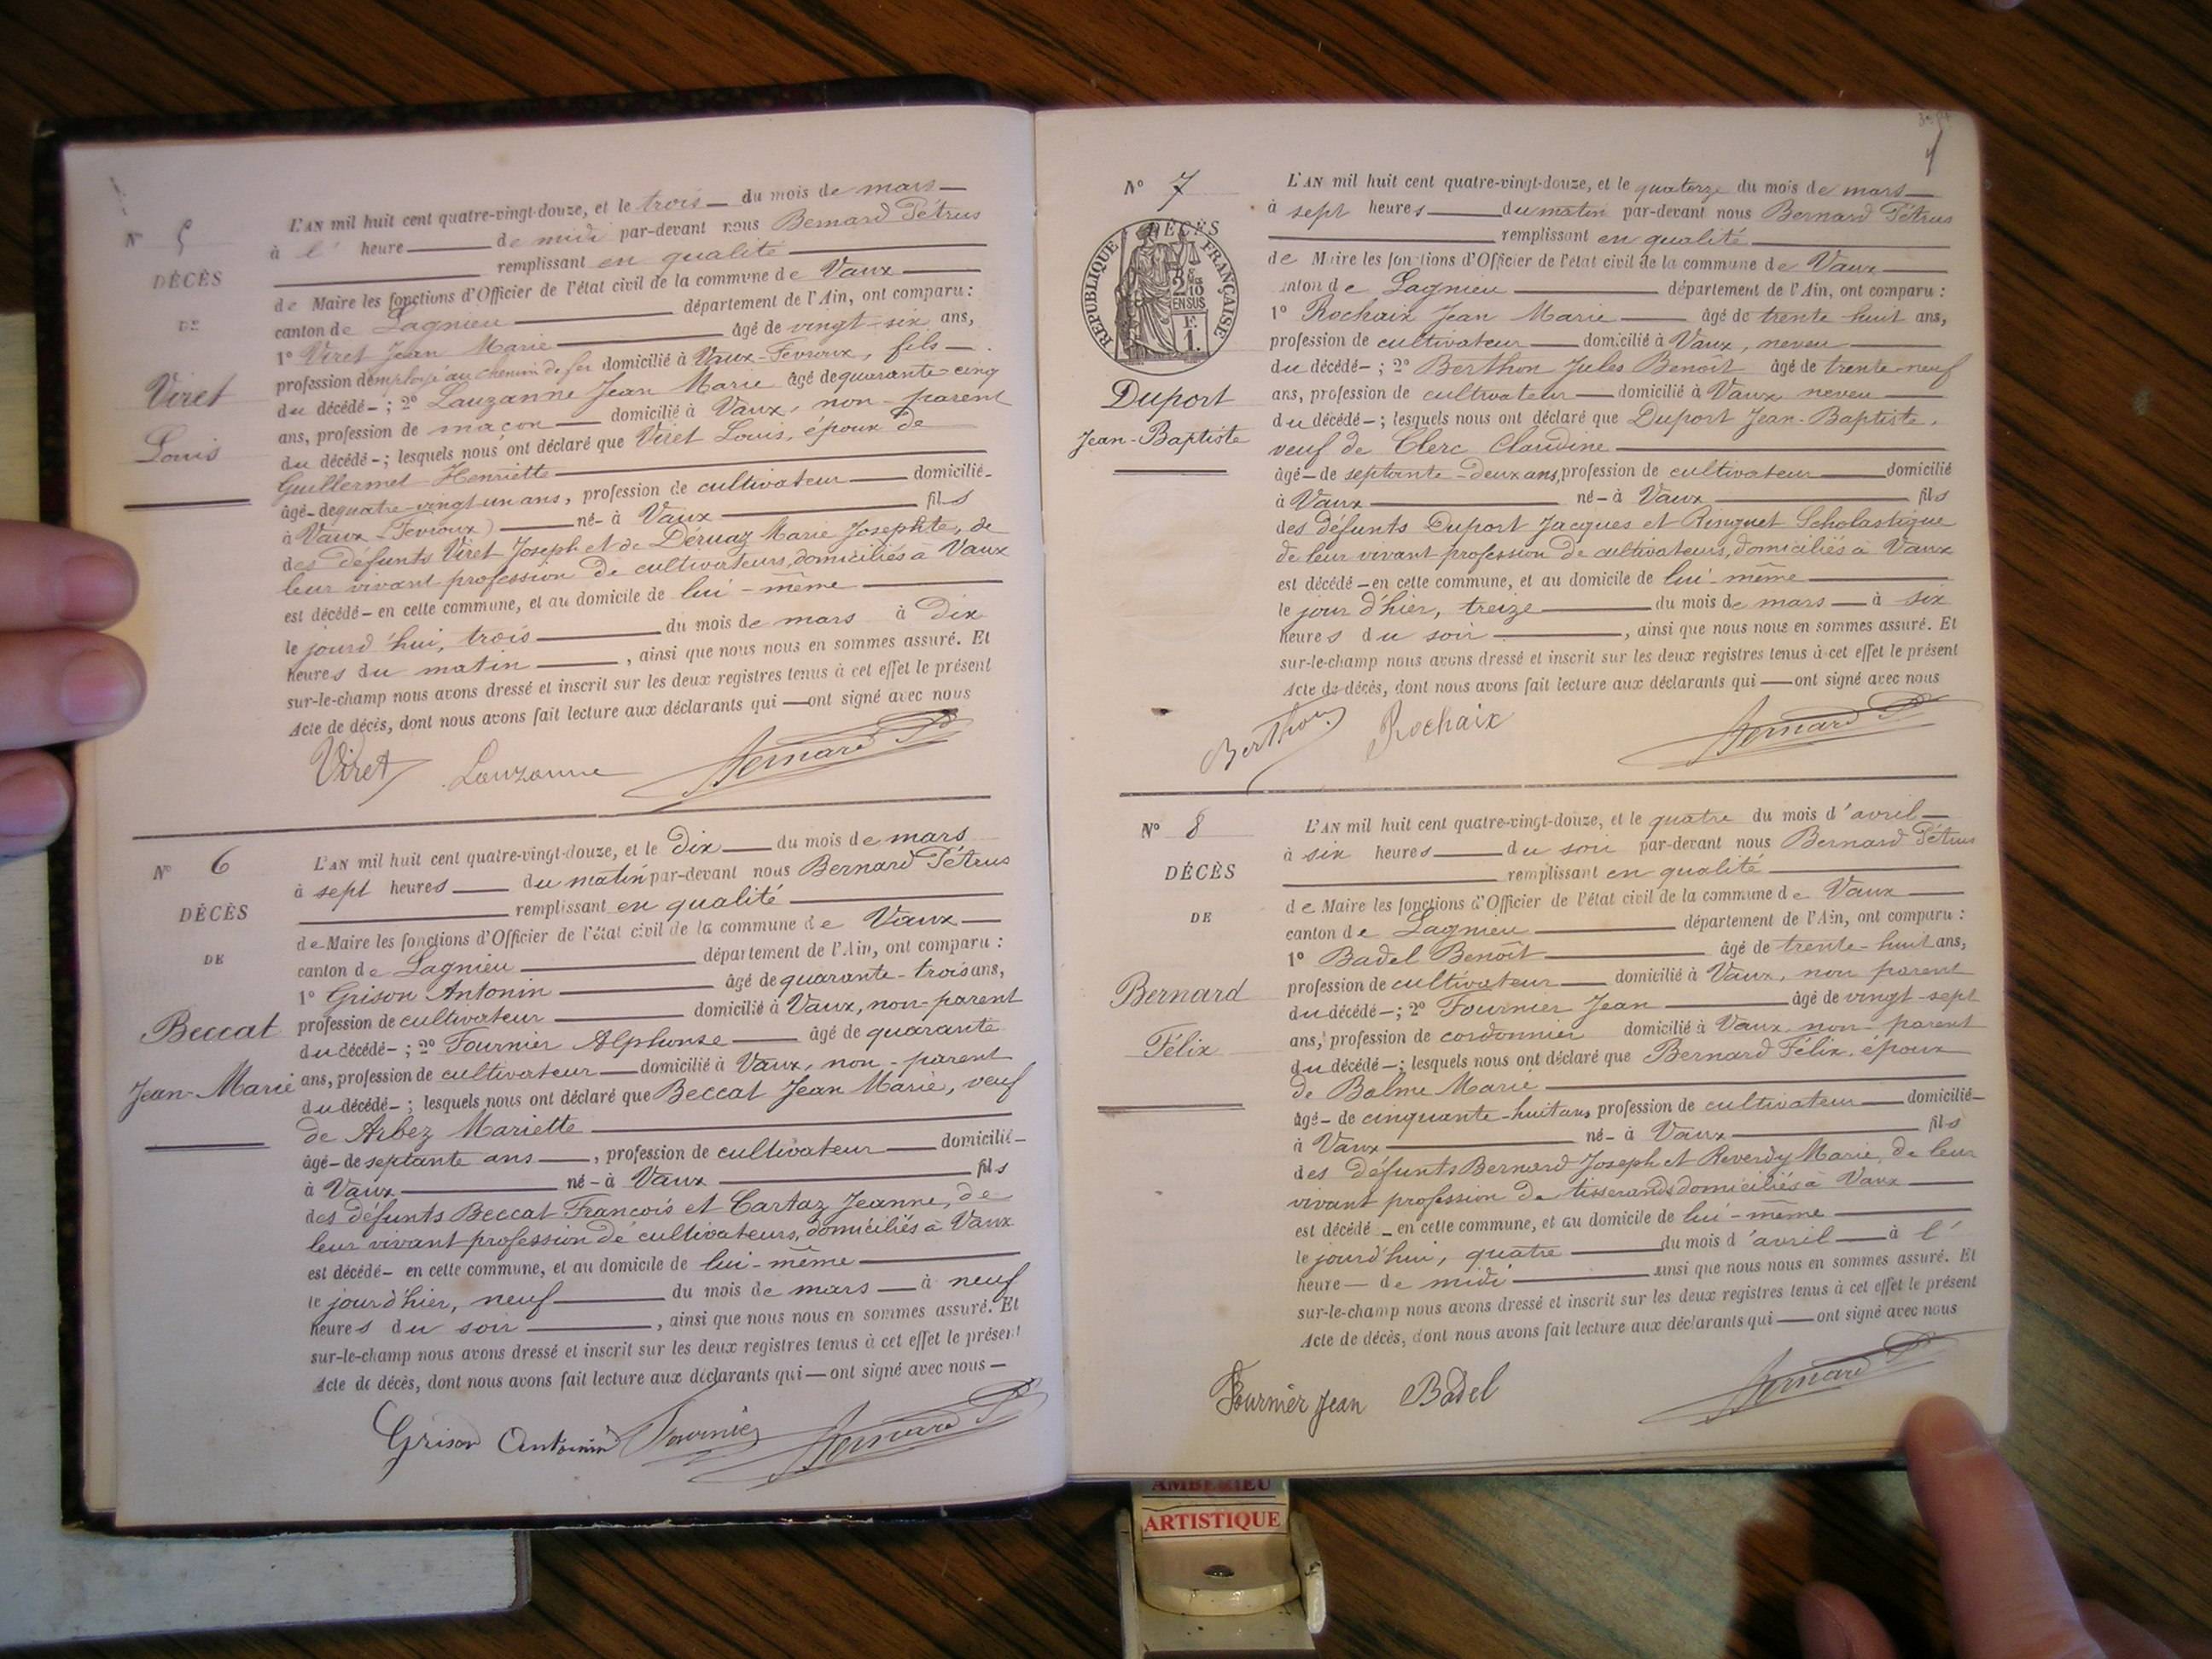 N° 5
DÉCÈS
DE
Viret
Louis
L'AN mil huit cent quatre-vingt-douze, et le trois du mois de mars
à l' heure de midi par-devant nous Bernard Pétrus
remplissant en qualité
de Maire les fonctions d'Officier de l'état civil de la commune de Vaux
canton de Lagnieu département de l'Ain, ont comparu :
1° Viret Jean Marie âgé de vingt-six ans,
profession d'employé au chemin de fer domicilié à Vaux-Fevroux, fils
du décédé ; 2° Lauzanne Jean Marie âgé de quarante-cinq
ans, profession de maçon domicilié à Vaux, non-parent
du décédé ; lesquels nous ont déclaré que Viret Louis, époux de
Guillermet Henriette
âgé de quatre-vingt un ans, profession de cultivateur domicilié
à Vaux (Fevroux) né à Vaux fils
des défunts Viret Joseph et de Déruaz Marie Josephte, de
leur vivant profession de cultivateurs, domiciliés à Vaux
est décédé en cette commune, et au domicile de lui-même
le jourd'hui, trois du mois de mars à Dix
heures du matin, ainsi que nous nous en sommes assuré. Et
sur-le-champ nous avons dressé et inscrit sur les deux registres tenus à cet effet le présent
Acte de décès, dont nous avons fait lecture aux déclarants qui ont signé avec nous
Viret Lauzanne Bernard P
N° 6
DÉCÈS
DE
Beccat
Jean-Marie
L'AN mil huit cent quatre-vingt-douze, et le Dix du mois de mars
à sept heures du matin par-devant nous Bernard Pétrus
remplissant en qualité
de Maire les fonctions d'Officier de l'état civil de la commune de Vaux
canton de Lagnieu département de l'Ain, ont comparu :
1° Grison Antonin âgé de quarante-trois ans,
profession de cultivateur domicilié à Vaux, non-parent
du décédé ; 2° Fournier Alphonse âgé de quarante
ans, profession de cultivateur domicilié à Vaux, non-parent
du décédé ; lesquels nous ont déclaré que Beccat Jean Marie, veuf
de Arbez Mariette
âgé de septante ans, profession de cultivateur domicilié
à Vaux né à Vaux fils
des défunts Beccat François et Cartaz Jeanne, de
leur vivant profession de cultivateurs, domiciliés à Vaux
est décédé en cette commune, et au domicile de lui-même
le jour d'hier, neuf du mois de mars à neuf
heures du soir, ainsi que nous nous en sommes assuré. Et
sur-le-champ nous avons dressé et inscrit sur les deux registres tenus à cet effet le présent
Acte de décès, dont nous avons fait lecture aux déclarants qui ont signé avec nous
Grison Antonin Fournier Bernard P
N° 7
DÉCÈS
RÉPUBLIQUE FRANÇAISE
2/10 EN SUS
F. 1.
Duport
Jean-Baptiste
L'AN mil huit cent quatre-vingt-douze, et le quatorze du mois de mars
à sept heures du matin par-devant nous Bernard Pétrus
remplissant en qualité
de Maire les fonctions d'Officier de l'état civil de la commune de Vaux
canton de Lagnieu département de l'Ain, ont comparu :
1° Rochaix Jean Marie âgé de trente huit ans,
profession de cultivateur domicilié à Vaux, neveu
du décédé ; 2° Berthon Jules Benoît âgé de trente-neuf
ans, profession de cultivateur domicilié à Vaux neveu
du décédé ; lesquels nous ont déclaré que Duport Jean-Baptiste,
veuf de Clerc Claudine
âgé de septante-deux ans, profession de cultivateur domicilié
à Vaux né à Vaux fils
des défunts Duport Jacques et Ringuet Scholastique
de leur vivant profession de cultivateurs, domiciliés à Vaux
est décédé en cette commune, et au domicile de lui-même
le jour d'hier, treize du mois de mars à six
heures du soir, ainsi que nous nous en sommes assuré. Et
sur-le-champ nous avons dressé et inscrit sur les deux registres tenus à cet effet le présent
Acte de décès, dont nous avons fait lecture aux déclarants qui ont signé avec nous
Berthon Rochaix Bernard P
N° 8
DÉCÈS
DE
Bernard
Félix
L'AN mil huit cent quatre-vingt-douze, et le quatre du mois d'avril
à six heures du soir par-devant nous Bernard Pétrus
remplissant en qualité
de Maire les fonctions d'Officier de l'état civil de la commune de Vaux
canton de Lagnieu département de l'Ain, ont comparu :
1° Badel Benoît âgé de trente-huit ans,
profession de cultivateur domicilié à Vaux, non parent
du décédé ; 2° Fournier Jean âgé de vingt-sept
ans, profession de cordonnier domicilié à Vaux non-parent
du décédé ; lesquels nous ont déclaré que Bernard Félix, époux
de Balme Marie
âgé de cinquante-huit ans, profession de cultivateur domicilié
à Vaux né à Vaux fils
des défunts Bernard Joseph et Reverdy Marie, de leur
vivant profession de tisserands domiciliés à Vaux
est décédé en cette commune, et au domicile de lui-même
le jourd'hui, quatre du mois d'avril à l'
heure de midi ainsi que nous nous en sommes assuré. Et
sur-le-champ nous avons dressé et inscrit sur les deux registres tenus à cet effet le présent
Acte de décès, dont nous avons fait lecture aux déclarants qui ont signé avec nous
Fournier Jean Badel Bernard P
AMBERIEU
ARTISTIQUE